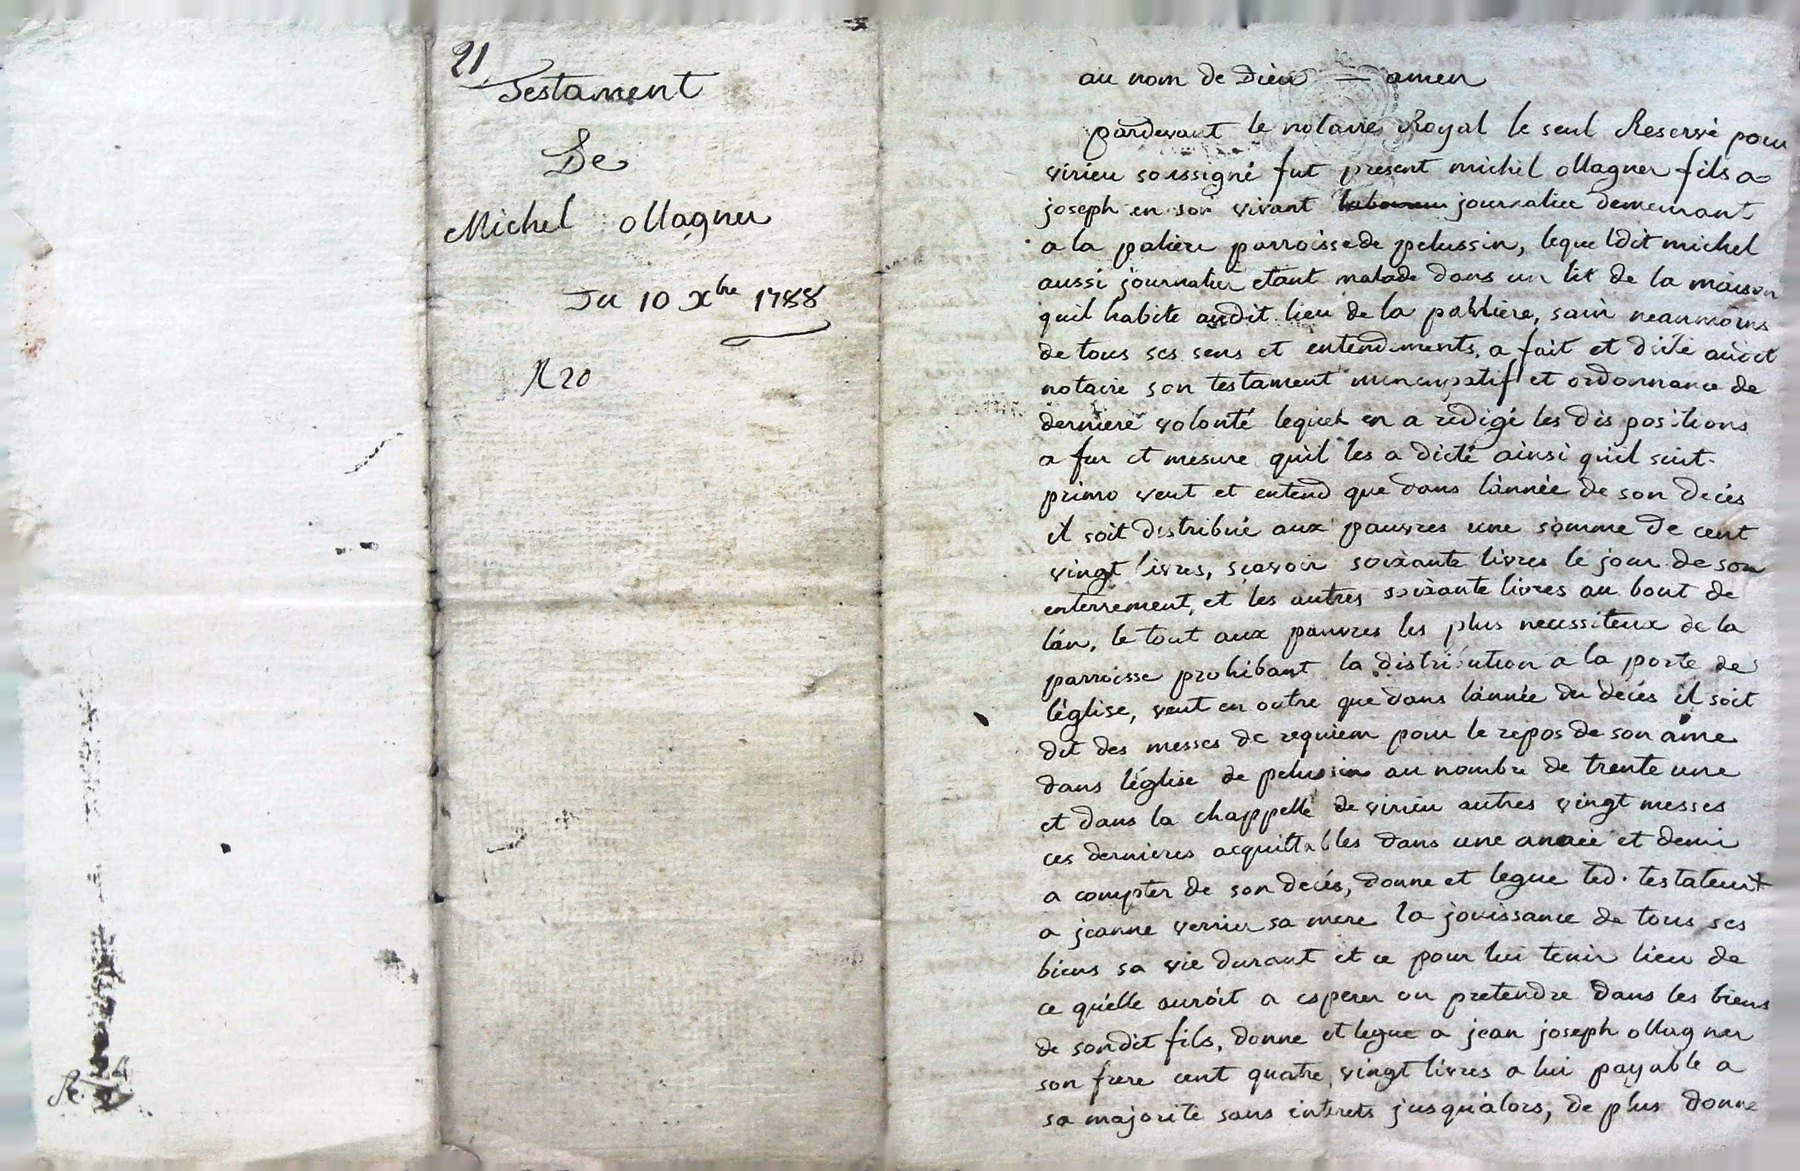 21
Testament
De
Michel ollagner
Du 10 Xbre 1788
R 20
au nom de Dieu = amen
pardevant le notaire Royal le seul Reservé pour
virieu soussigné fut present michel ollagner fils a
joseph en son vivant journalier demeurant
a la paliere parroisse de pelussin, lequel dit michel
aussi journalier etant malade dans un lit de la maison
quil habite audit lieu de la palliere, sain neanmoins
de tous ses sens et entendements, a fait et dicté audit
notaire son testament nuncupatif et ordonnance de
derniere volonté lequel en a redigé les dispositions
a fur et mesure quil les a dicté ainsi quil suit.
primo veut et entend que dans lannée de son decés
il soit distribué aux pauvres une somme de cent
vingt livres, sçavoir soixante livres le jour de son
enterrement, et les autres soixante livres au bout de
lán, le tout aux pauvres les plus necessiteux de la
parroisse prohibant la distribution a la porte de
léglise, veut en outre que dans lannée du decés il soit
dit des messes de requiem pour le repos de son ame
dans léglise de pelussin au nombre de trente une
et dans la chappelle de virieu autres vingt messes
ces dernieres acquittables dans une année et demi
a compter de son decés, donne et legue led. testateur
a jeanne verrier sa mere la jouissance de tous ses
biens sa vie durant et ce pour lui tenir lieu de
ce quélle auroit a esperer ou pretendre dans les biens
de sondit fils, donne et legue a jean joseph ollagner
son frere cent quatre vingt livres a lui payable a
sa majorité sans interets jusqu'alors, de plus donne